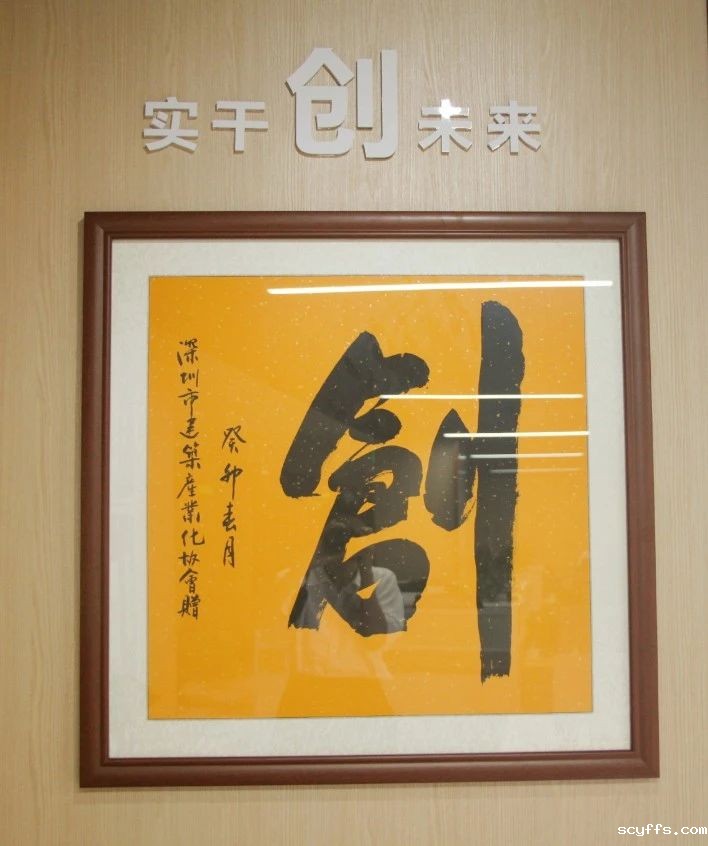 实干创未来
創
癸卯春月
深圳市建築產業化協會贈
scyffs.com